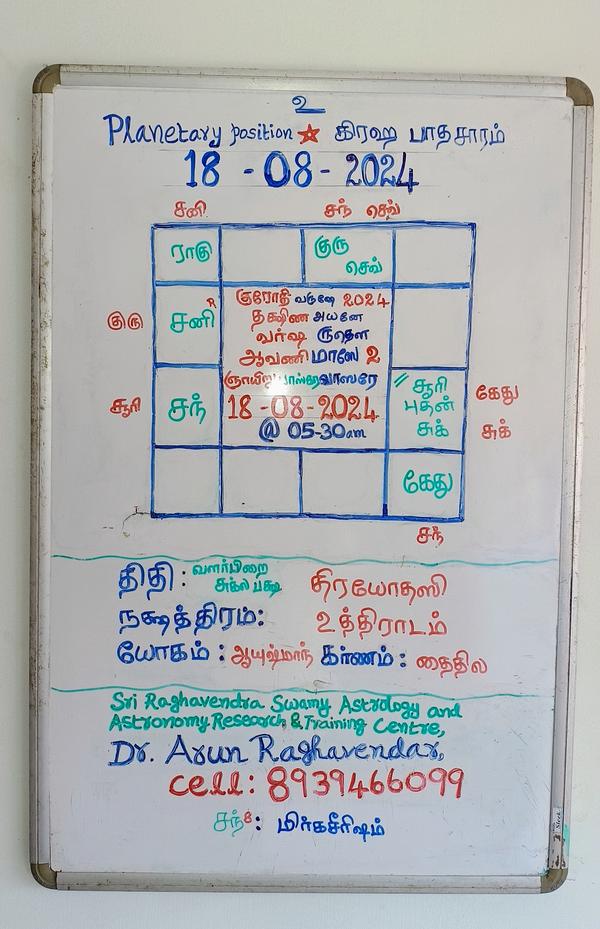 உ
Planetary position கிரஹ பாதசாரம்
18 - 08 - 2024
சனி சந் செவ்
ராகு குரு
செவ்
குரு சனி R
குரோதி வருஷே 2024
தக்ஷிண அயனே
வர்ஷ ருதௌ
ஆவணி மாஸே 2
ஞாயிறு வாஸரே
18 - 08 - 2024
@ 05-30am
சூரி சந்
// சூரி
புதன்
சுக்
கேது
சுக்
கேது
சந்
திதி : வளர்பிறை
சுக்ல பக்ஷ
திரயோதஸி
நக்ஷத்திரம்: உத்திராடம்
யோகம் : ஆயுஷ்மாந் கர்ணம் : தைதில
Sri Raghavendra Swamy Astrology and
Astronomy Research & Training Centre,
Dr. Arun Raghavendar,
cell: 8939466099
சந்8: மிர்கசீரிஷம்